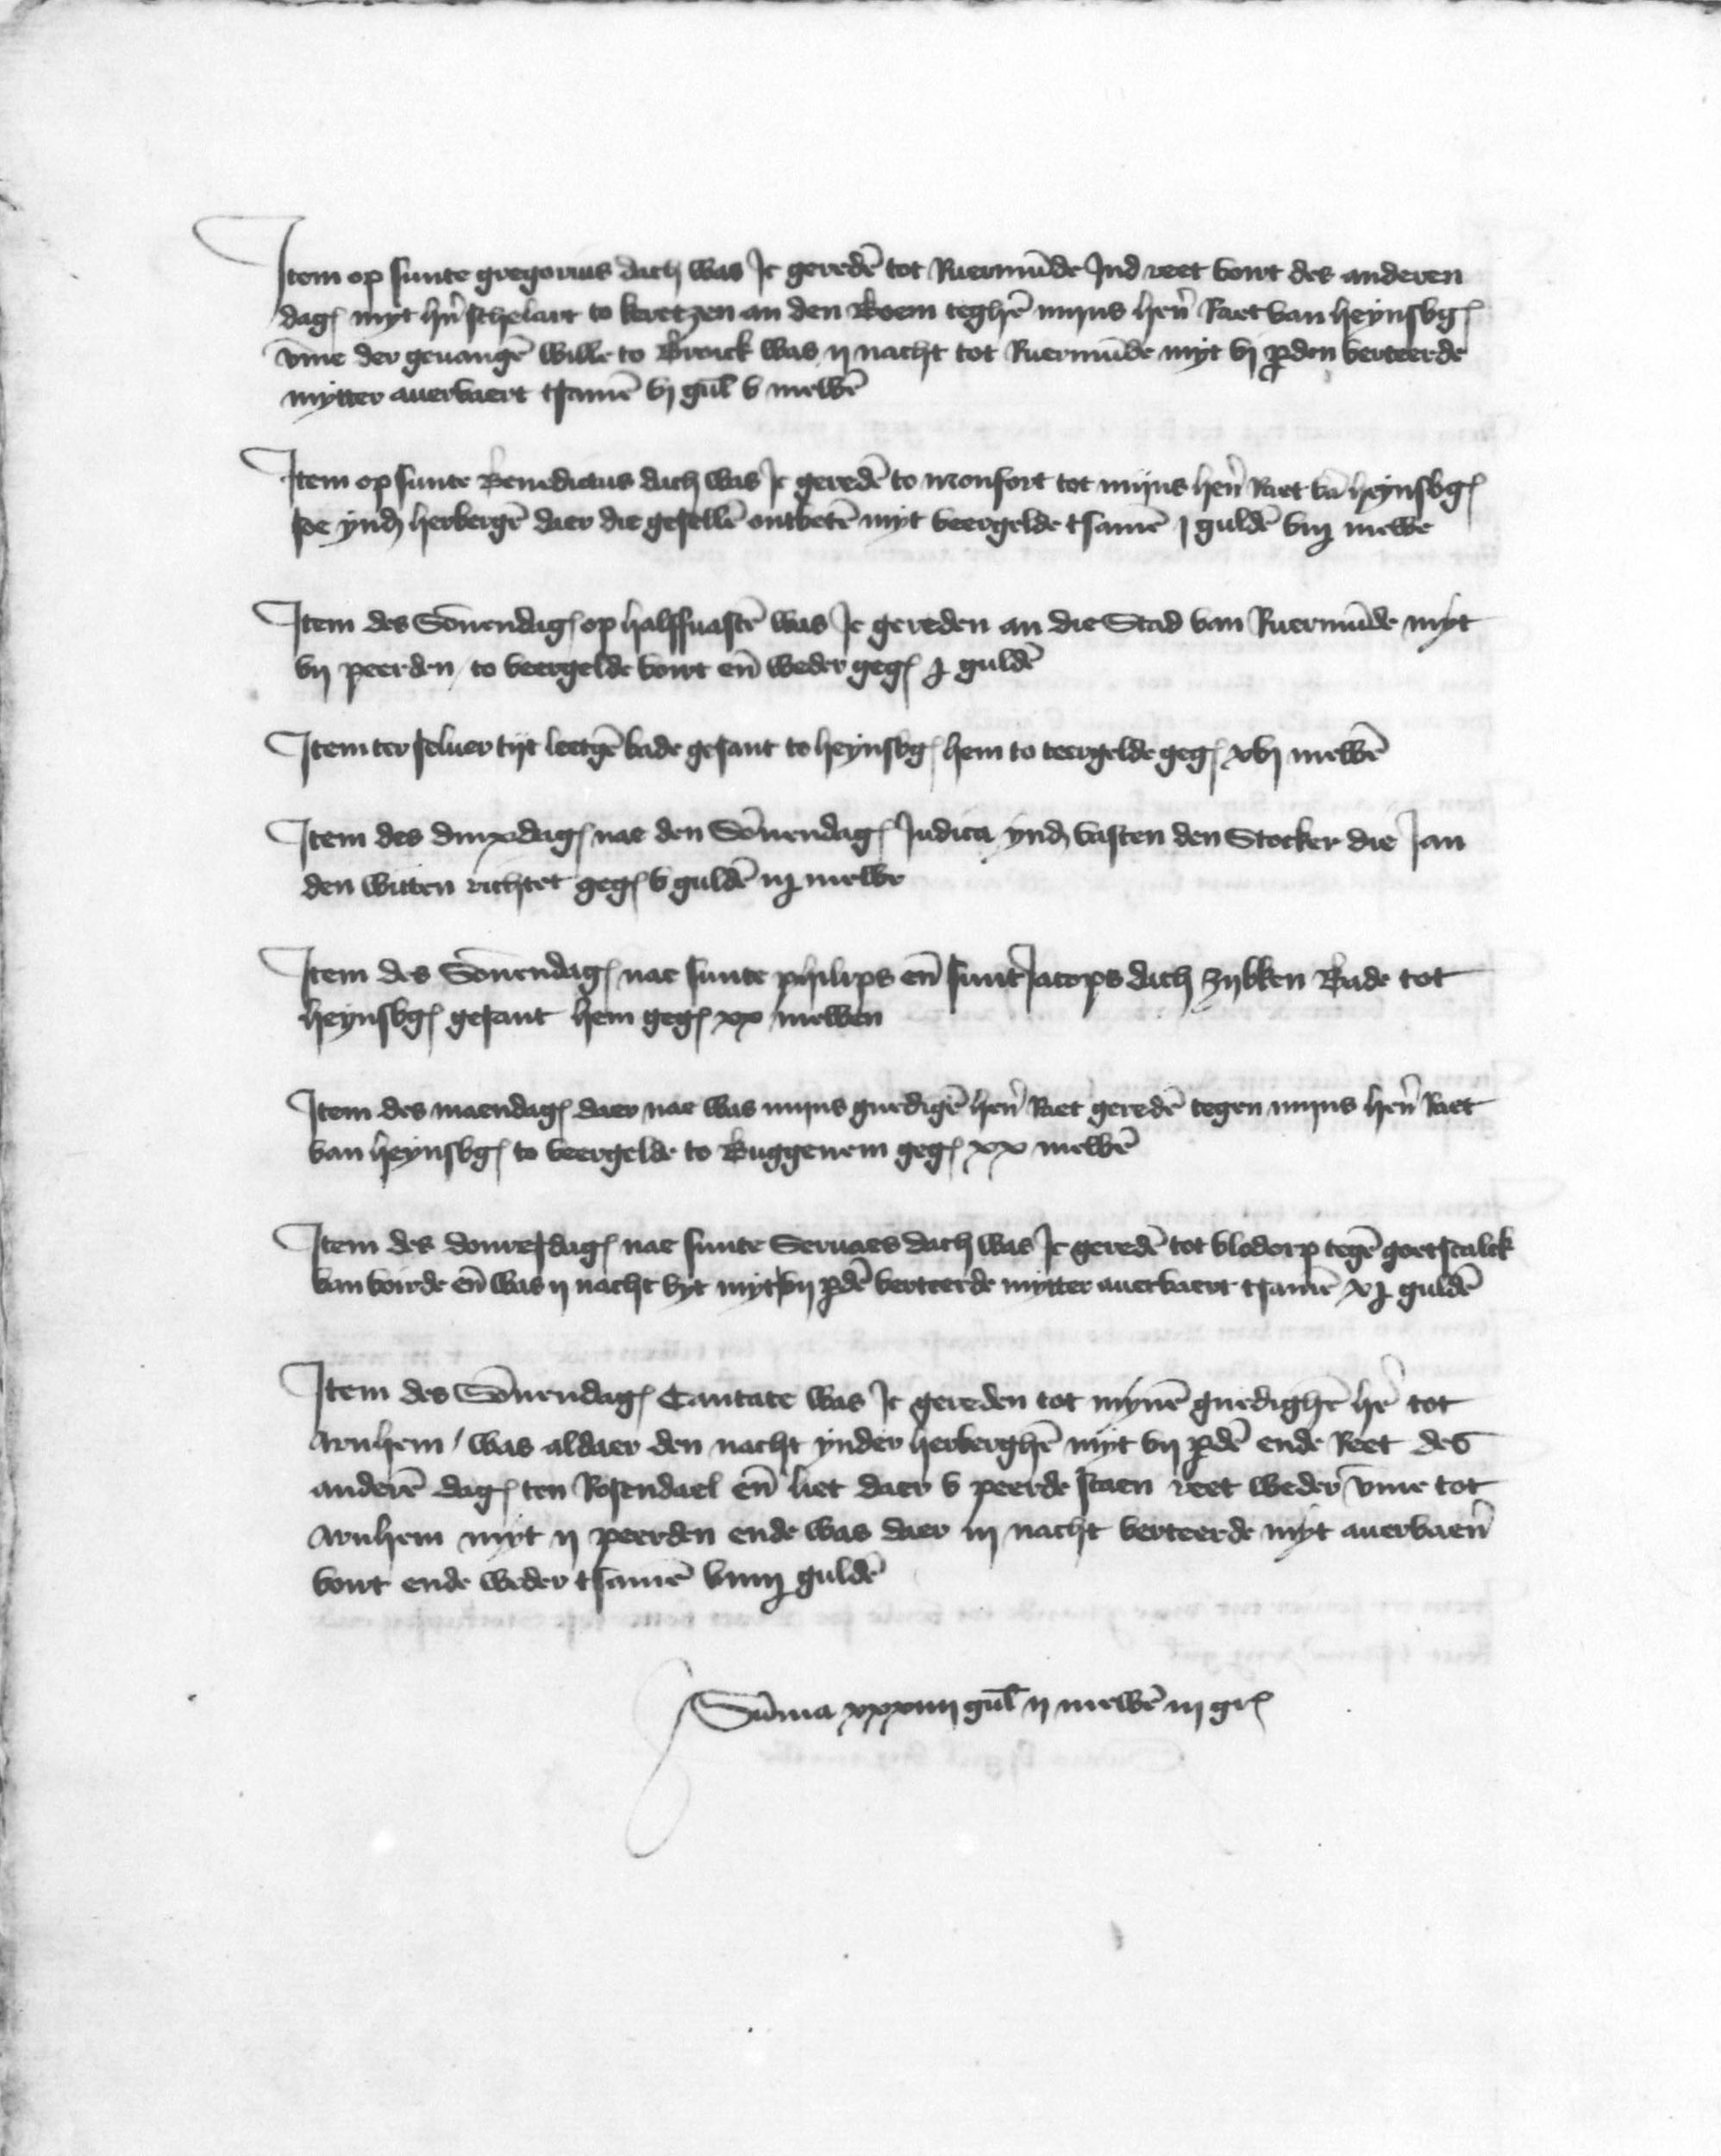 Item op sunte gregorius dach was Ic geredē tot Ruermūde Ind reet vort des anderen
dags myt hn̄ schelart to kretzen an den Boem teghē mijns hen̄ Raet van heynsbgs
vm̄e der geuangē wille to Broick was ij nacht tot Ruermūde myt vj pden verteerde
mytter auervaert tsamē vj gul̄ v mewē
Item op sunte Benedictus dach was Ic geredē to monfort tot mijns hen̄ Raet vā heynsbgs
ynd herbergē daer die gesellē ontbetē myt veergelde tsamē j guldē viij mewe
Item des Sonnendags op halffuastē was Ic gereden an die Stad van Ruermūde myt
vij peerden / to veergelde vort en̄ weder gegs j guldē
Item ter seluer tijt leetgē bade gesant to heynsbgs hem to teergelde gegs xvj mewē
Item des dinxdags nae den Sōnendags Judica ynd vasten den Stocker die Jan
den witten richtet gegs v guldē iij mewe
Item des Sonnendags nae sunte philips en̄ sunt Jacops dach zijbken Bade tot
heynsbgs gesant hem gegs xx mewen
Item des maendags daer nae was mijns gnedigē hen̄ Raet geredē tegen mijns hen̄ Raet
van heynsbgs to veergelde to Buggenem gegs xx mewē
Item des donresdags nae sunte Seruaes dach was Ic geredē tot vlodorp tegē goetscalck
van voirde en̄ was ij nacht vyt myt vij pdē verteerde mytter auervaert tsamē xj guldē
Item des Sōnnendags Cantate was Ic gereden tot mynē gnedighē he tot
Arnhem / was aldaer den nacht ynder herberghē myt vij pdē ende Reet des
anderē dags ten Rosendael en̄ liet daer v peerde staen reet weder vm̄e tot
Arnhem myt ij peerden ende was daer iij nacht verteerde myt auervaen̄
vort ende weder tsamē viiij guldē
Sūma xxxiiij gul̄ ij mewē iij grs